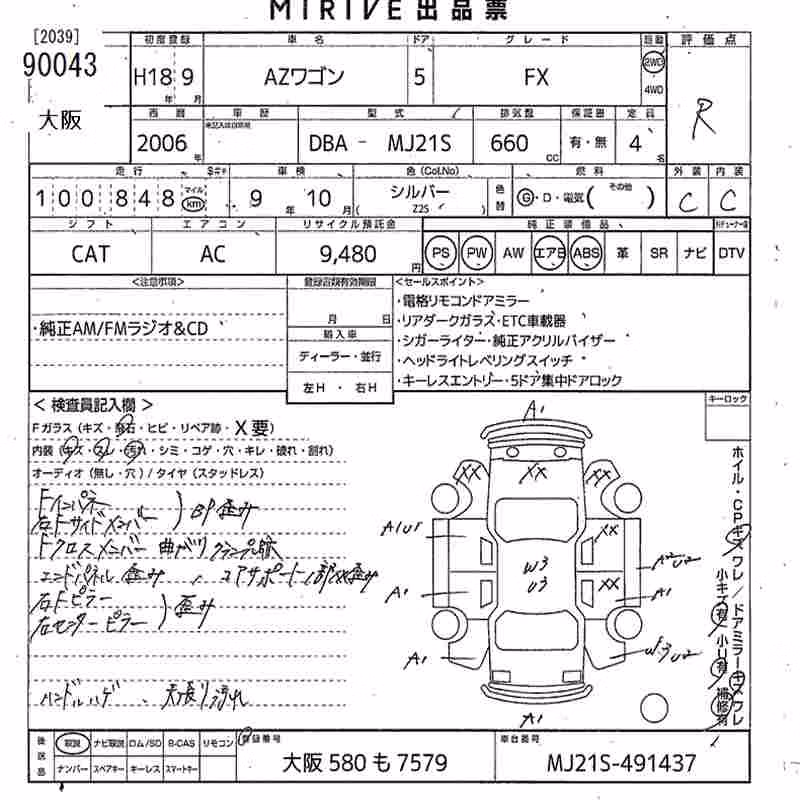 MIRIVE 出品票
[2039]
90043
大阪
初度登録 車名 ドア グレード 駆動 評価点
H18 9 年 月 AZワゴン 5 FX 2WD 4WD R
西暦 車歴 型式 排気量 保証書 定員
2006 年 DBA - MJ21S 660 CC 有・無 4 名
走行 車検 色(Col.No) 燃料 外装 内装
100848 マイル km 9 年 10 月 シルバー Z2S 色替 G・D・電気 (その他) C C
シフト エアコン リサイクル預託金 純正装備品
CAT AC 9,480 円 PS PW AW エアB ABS 革 SR ナビ DTV
<注意事項> 登録書類有効期限 <セールスポイント>
・純正AM/FMラジオ&CD
月 日
輸入車
ディーラー・並行
左H ・ 右H
・電格リモコンドアミラー
・リアダークガラス・ETC車載器
シガーライター・純正アクリルバイザー
・ヘッドライトレベリングスイッチ
・キーレスエントリー・5ドア集中ドアロック
キーロック
<検査員記入欄>
Fガラス(キズ・飛石・ヒビ・リペア跡・X要)
内装(キズ・スレ・汚れ・シミ・コゲ・穴・キレ・破れ・割れ)
オーディオ(無し・穴)/タイヤ(スタッドレス)
Fインパネ
右Fサイドメンバー ) BP歪み
Fクロスメンバー曲がりクランプ跡
エンドパネル歪み、コアサポート一部XX歪み
右Fピラー
右センターピラー ) 歪み
ハンドルハゲ、天張り汚れ
A1
XX XX
A1U1 XX
W3
U3
A2U2
A1 XX A1
A1 W3U2
A1
ホイル・CPキズワレ/ドアミラーキズワレ
小キズ有・小U有・補修有
後送品 取説 ナビ取説 ロム/SD B-CAS リモコン 登録番号 車台番号
ナンバー スペアキー キーレス スマートキー 大阪 580 も 7579 MJ21S-491437